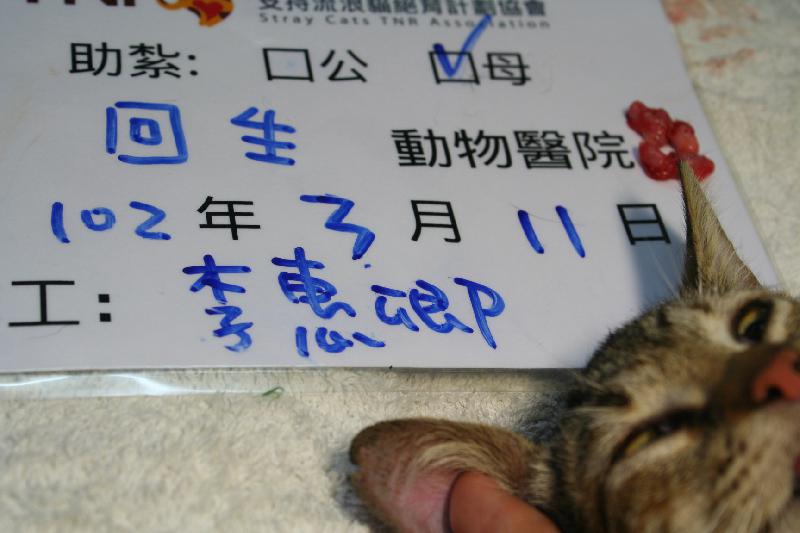 支持流浪貓絕育計劃協會
Stray Cats TNR Association
助紮: □公 ☑母
回生 動物醫院
102年3月11日
工: 李惠